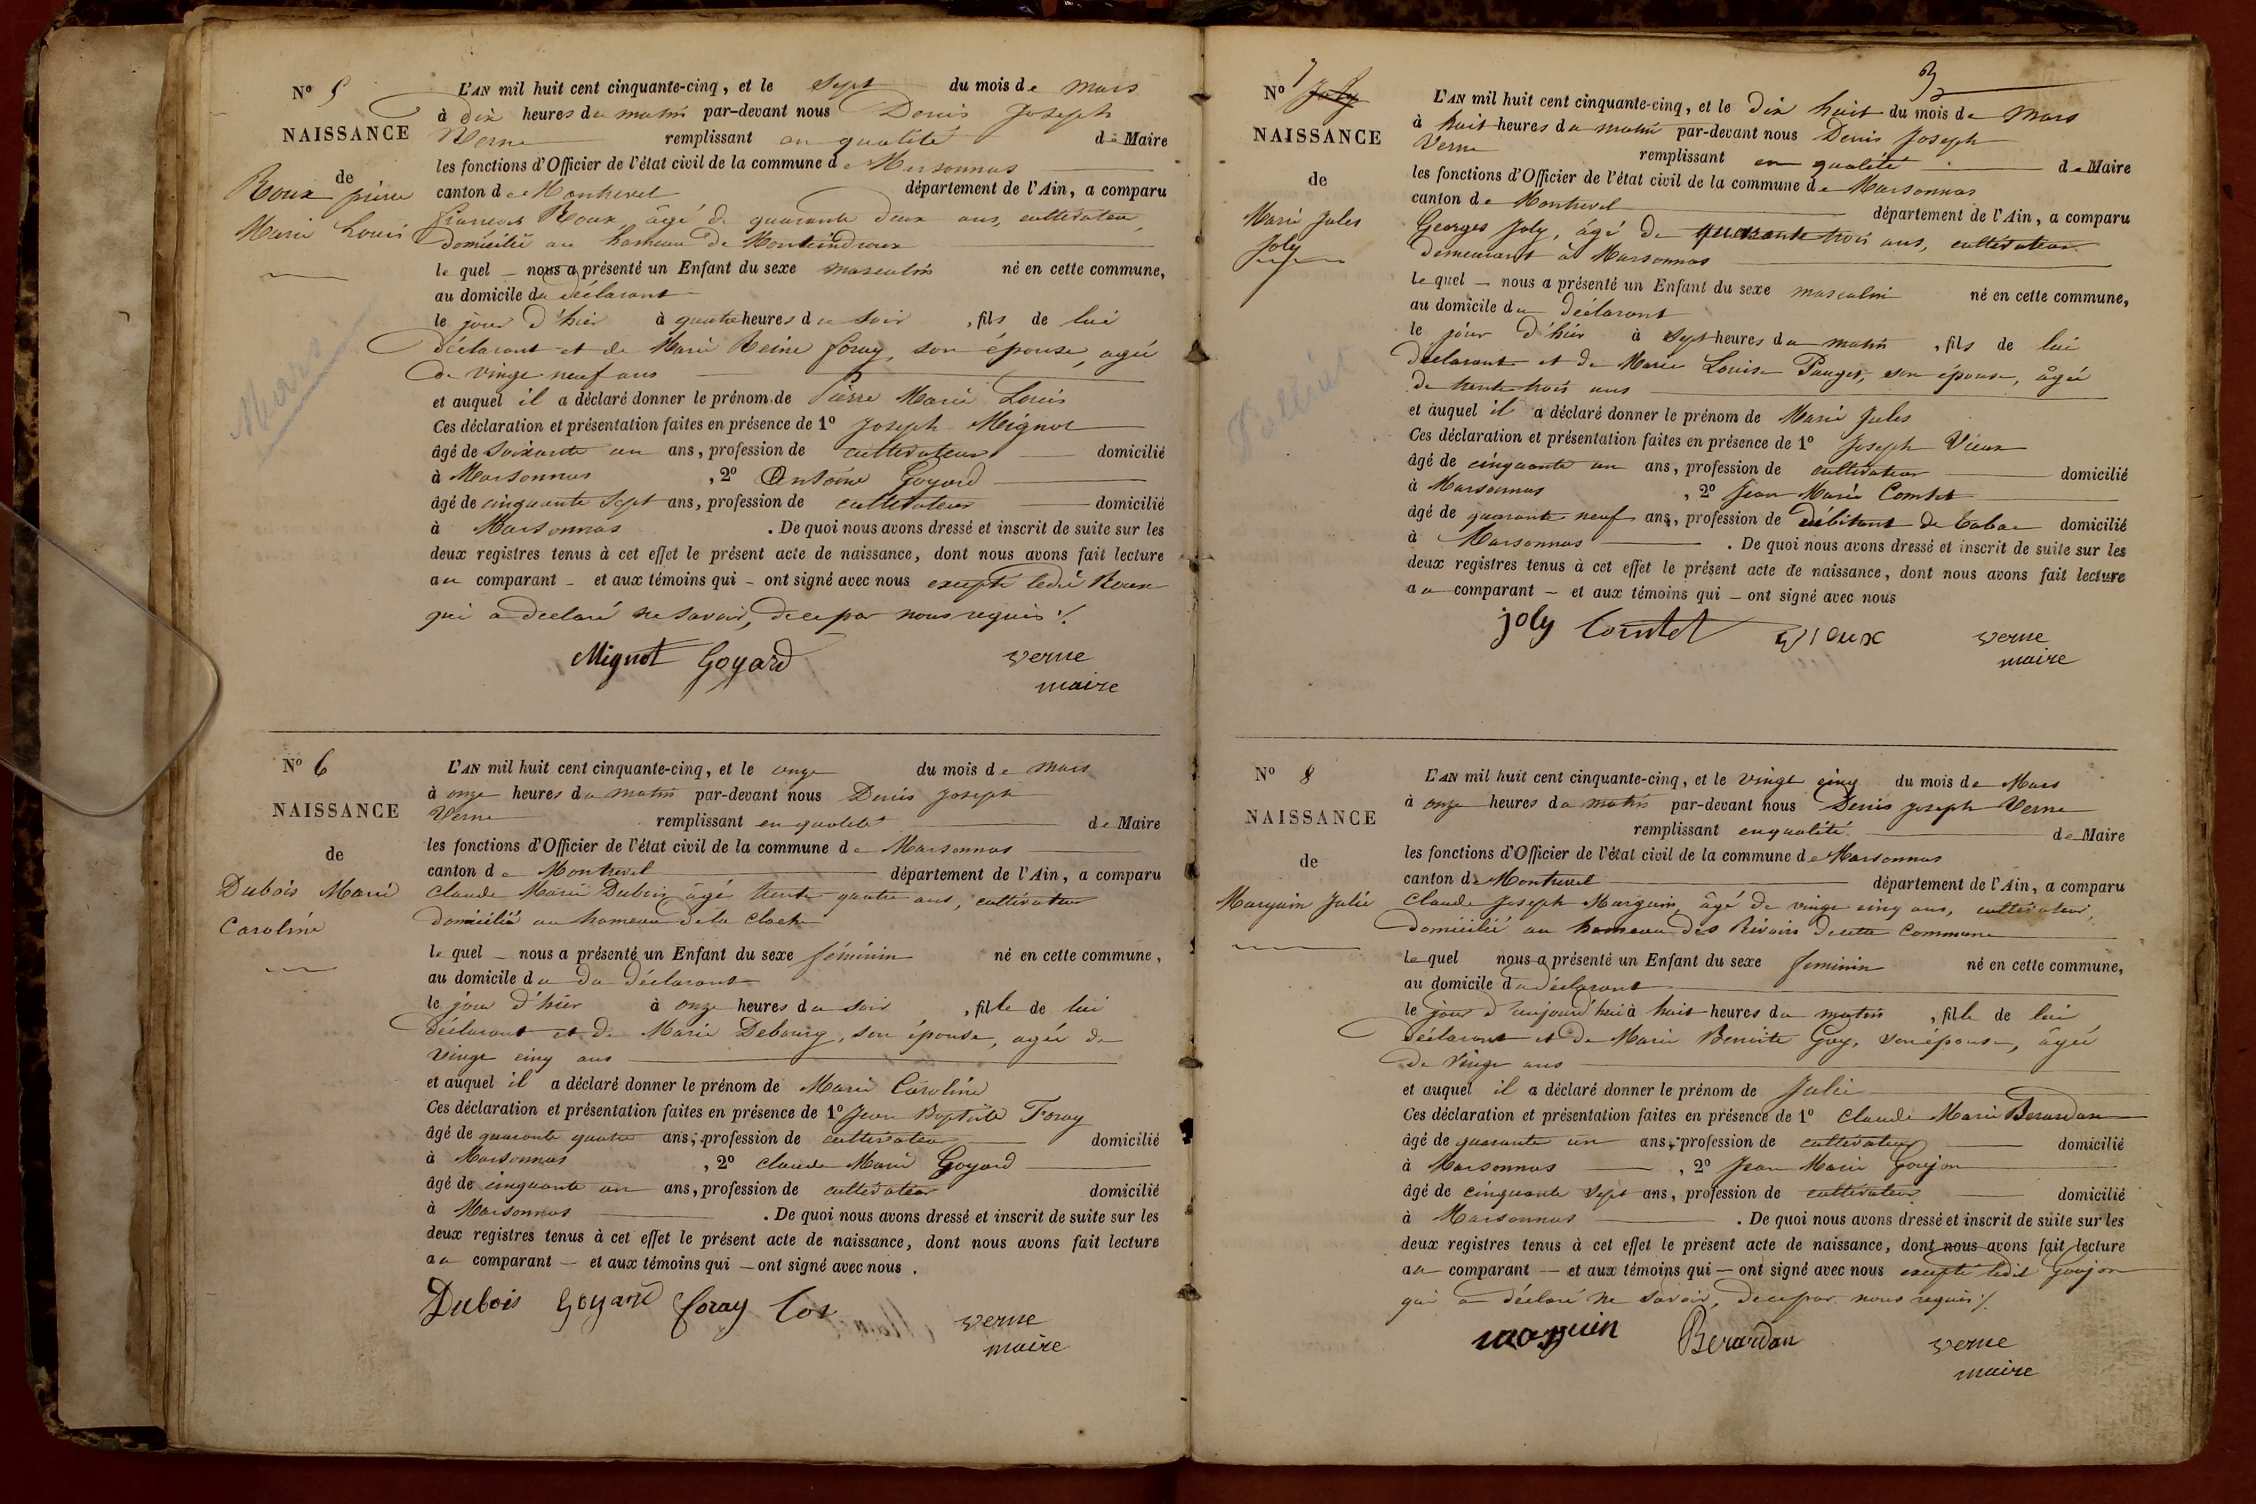 Nº 5
NAISSANCE
de
Roux pierre
Marie Louis
L'AN mil huit cent cinquante-cinq, et le sept du mois de mars
à dix heures du matin par-devant nous Denis Joseph
Verne remplissant en qualité de Maire
les fonctions d'Officier de l'état civil de la commune de Marsonnas
canton de Montrevel département de l'Ain, a comparu
françois Roux âgé de quarante deux ans, cultivateur,
domicilié au hameau de
le quel nous a présenté un Enfant du sexe masculin né en cette commune,
au domicile du déclarant
le jour d'hier à quatre heures du soir, fils de lui
déclarant et de Marie Reine foray, son épouse, agée
de vingt neuf ans
et auquel il a déclaré donner le prénom de Pierre Marie Louis
Ces déclaration et présentation faites en présence de 1º Joseph Mignot
âgé de soixante un ans, profession de cultivateur domicilié
à Marsonnas, 2º Antoine Goyard
âgé de cinquante sept ans, profession de cultivateur domicilié
à Marsonnas. De quoi nous avons dressé et inscrit de suite sur les
deux registres tenus à cet effet le présent acte de naissance, dont nous avons fait lecture
au comparant et aux témoins qui ont signé avec nous excepté ledit Roux
qui a declaré ne savoir, de ce par nous requis ./.
Mignot Goyard verne
maire
Nº 6
NAISSANCE
de
Dubois Marie
Caroline
L'AN mil huit cent cinquante-cinq, et le onze du mois de mars
à onze heures du matin par-devant nous Denis Joseph
Verne remplissant en qualité de Maire
les fonctions d'Officier de l'état civil de la commune de Marsonnas
canton de Montrevel département de l'Ain, a comparu
Claude Marie Dubois âgé trente quatre ans, cultivateur
domicilié au hameau de la
le quel nous a présenté un Enfant du sexe féminin né en cette commune,
au domicile du du déclarant
le jour d'hier à onze heures du soir, fille de lui
déclarant et de Marie Debourg, son épouse, agée de
vingt cinq ans
et auquel il a déclaré donner le prénom de Marie Caroline
Ces déclaration et présentation faites en présence de 1º Jean Baptiste Foray
âgé de quarante quatre ans, profession de cultivateur domicilié
à Marsonnas, 2º claude Marie Goyard
âgé de cinquante un ans, profession de cultivateur domicilié
à Marsonnas. De quoi nous avons dressé et inscrit de suite sur les
deux registres tenus à cet effet le présent acte de naissance, dont nous avons fait lecture
au comparant et aux témoins qui ont signé avec nous.
Dubois Goyard foray verne
maire
3
Nº 7 Joly
NAISSANCE
de
Marie Jules
Joly
L'AN mil huit cent cinquante-cinq, et le dix huit du mois de Mars
à huit heures du matin par-devant nous Denis Joseph
Verne remplissant en qualité de Maire
les fonctions d'Officier de l'état civil de la commune de Marsonnas
canton de Montrevel département de l'Ain, a comparu
Georges Joly, âgé de quarante trois ans, cultivateur
demeurant à Marsonnas
le quel nous a présenté un Enfant du sexe masculin né en cette commune,
au domicile du déclarant
le jour d'hier à sept heures du matin, fils de lui
déclarant et de Marie Louise Pauget, son épouse, âgée
de trente trois ans
et auquel il a déclaré donner le prénom de Marie Jules
Ces déclaration et présentation faites en présence de 1º Joseph Vieux
âgé de cinquante un ans, profession de cultivateur domicilié
à Marsonnas, 2º Jean Marie Comtet
âgé de quarante neuf ans, profession de débitant de tabac domicilié
à Marsonnas. De quoi nous avons dressé et inscrit de suite sur les
deux registres tenus à cet effet le présent acte de naissance, dont nous avons fait lecture
au comparant et aux témoins qui ont signé avec nous
joly Comtet Vieux verne
maire
Nº 8
NAISSANCE
de
Marguin Julie
L'AN mil huit cent cinquante-cinq, et le vingt cinq du mois de Mars
à onze heures du matin par-devant nous Denis Joseph Verne
remplissant en qualité de Maire
les fonctions d'Officier de l'état civil de la commune de Marsonnas
canton de Montrevel département de l'Ain, a comparu
Claude Joseph Marguin, âgé de vingt cinq ans, cultivateur,
domicilié au hameau des Rivoirs de cette Commune
le quel nous a présenté un Enfant du sexe féminin né en cette commune,
au domicile du déclarant
le jour d'aujourd'hui à huit heures du matin, fille de lui
déclarant et de Marie Benoite Goy, son épouse, âgée
de vingt ans
et auquel il a déclaré donner le prénom de Julie
Ces déclaration et présentation faites en présence de 1º Claude Marie Berardan
âgé de quarante un ans, profession de cultivateur domicilié
à Marsonnas, 2º Jean Marie Goujon
âgé de cinquante sept ans, profession de cultivateur domicilié
à Marsonnas. De quoi nous avons dressé et inscrit de suite sur les
deux registres tenus à cet effet le présent acte de naissance, dont nous avons fait lecture
au comparant et aux témoins qui ont signé avec nous excepté ledit Goujon
qui a déclaré ne savoir, de ce par nous requis ./.
marguin Berardan verne
maire